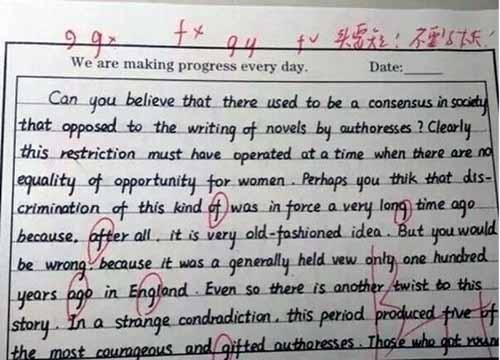 g g× f× g y f✓ 头要短！不要写太长！
We are making progress every day. Date:
Can you believe that there used to be a consensus in society
that opposed to the writing of novels by authoresses? Clearly
this restriction must have operated at a time when there are no
equality of opportunity for women. Perhaps you thik that dis-
crimination of this kind of was in force a very long time ago
because, after all, it is very old-fashioned idea. But you would
be wrong, because it was a generally held vew only one hundred
years ago in England. Even so there is another twist to this
story. In a strange condradiction, this period produced five of
the most courageous and gifted authoresses. Those who got